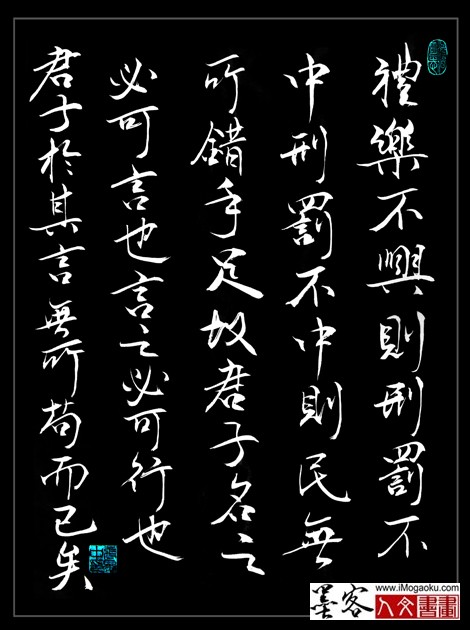 禮樂不興則刑罰不
中刑罰不中則民無
所錯手足故君子名之
必可言也言之必可行也
君子於其言無所苟而已矣
www.iMogaoku.com
墨客人文書畫